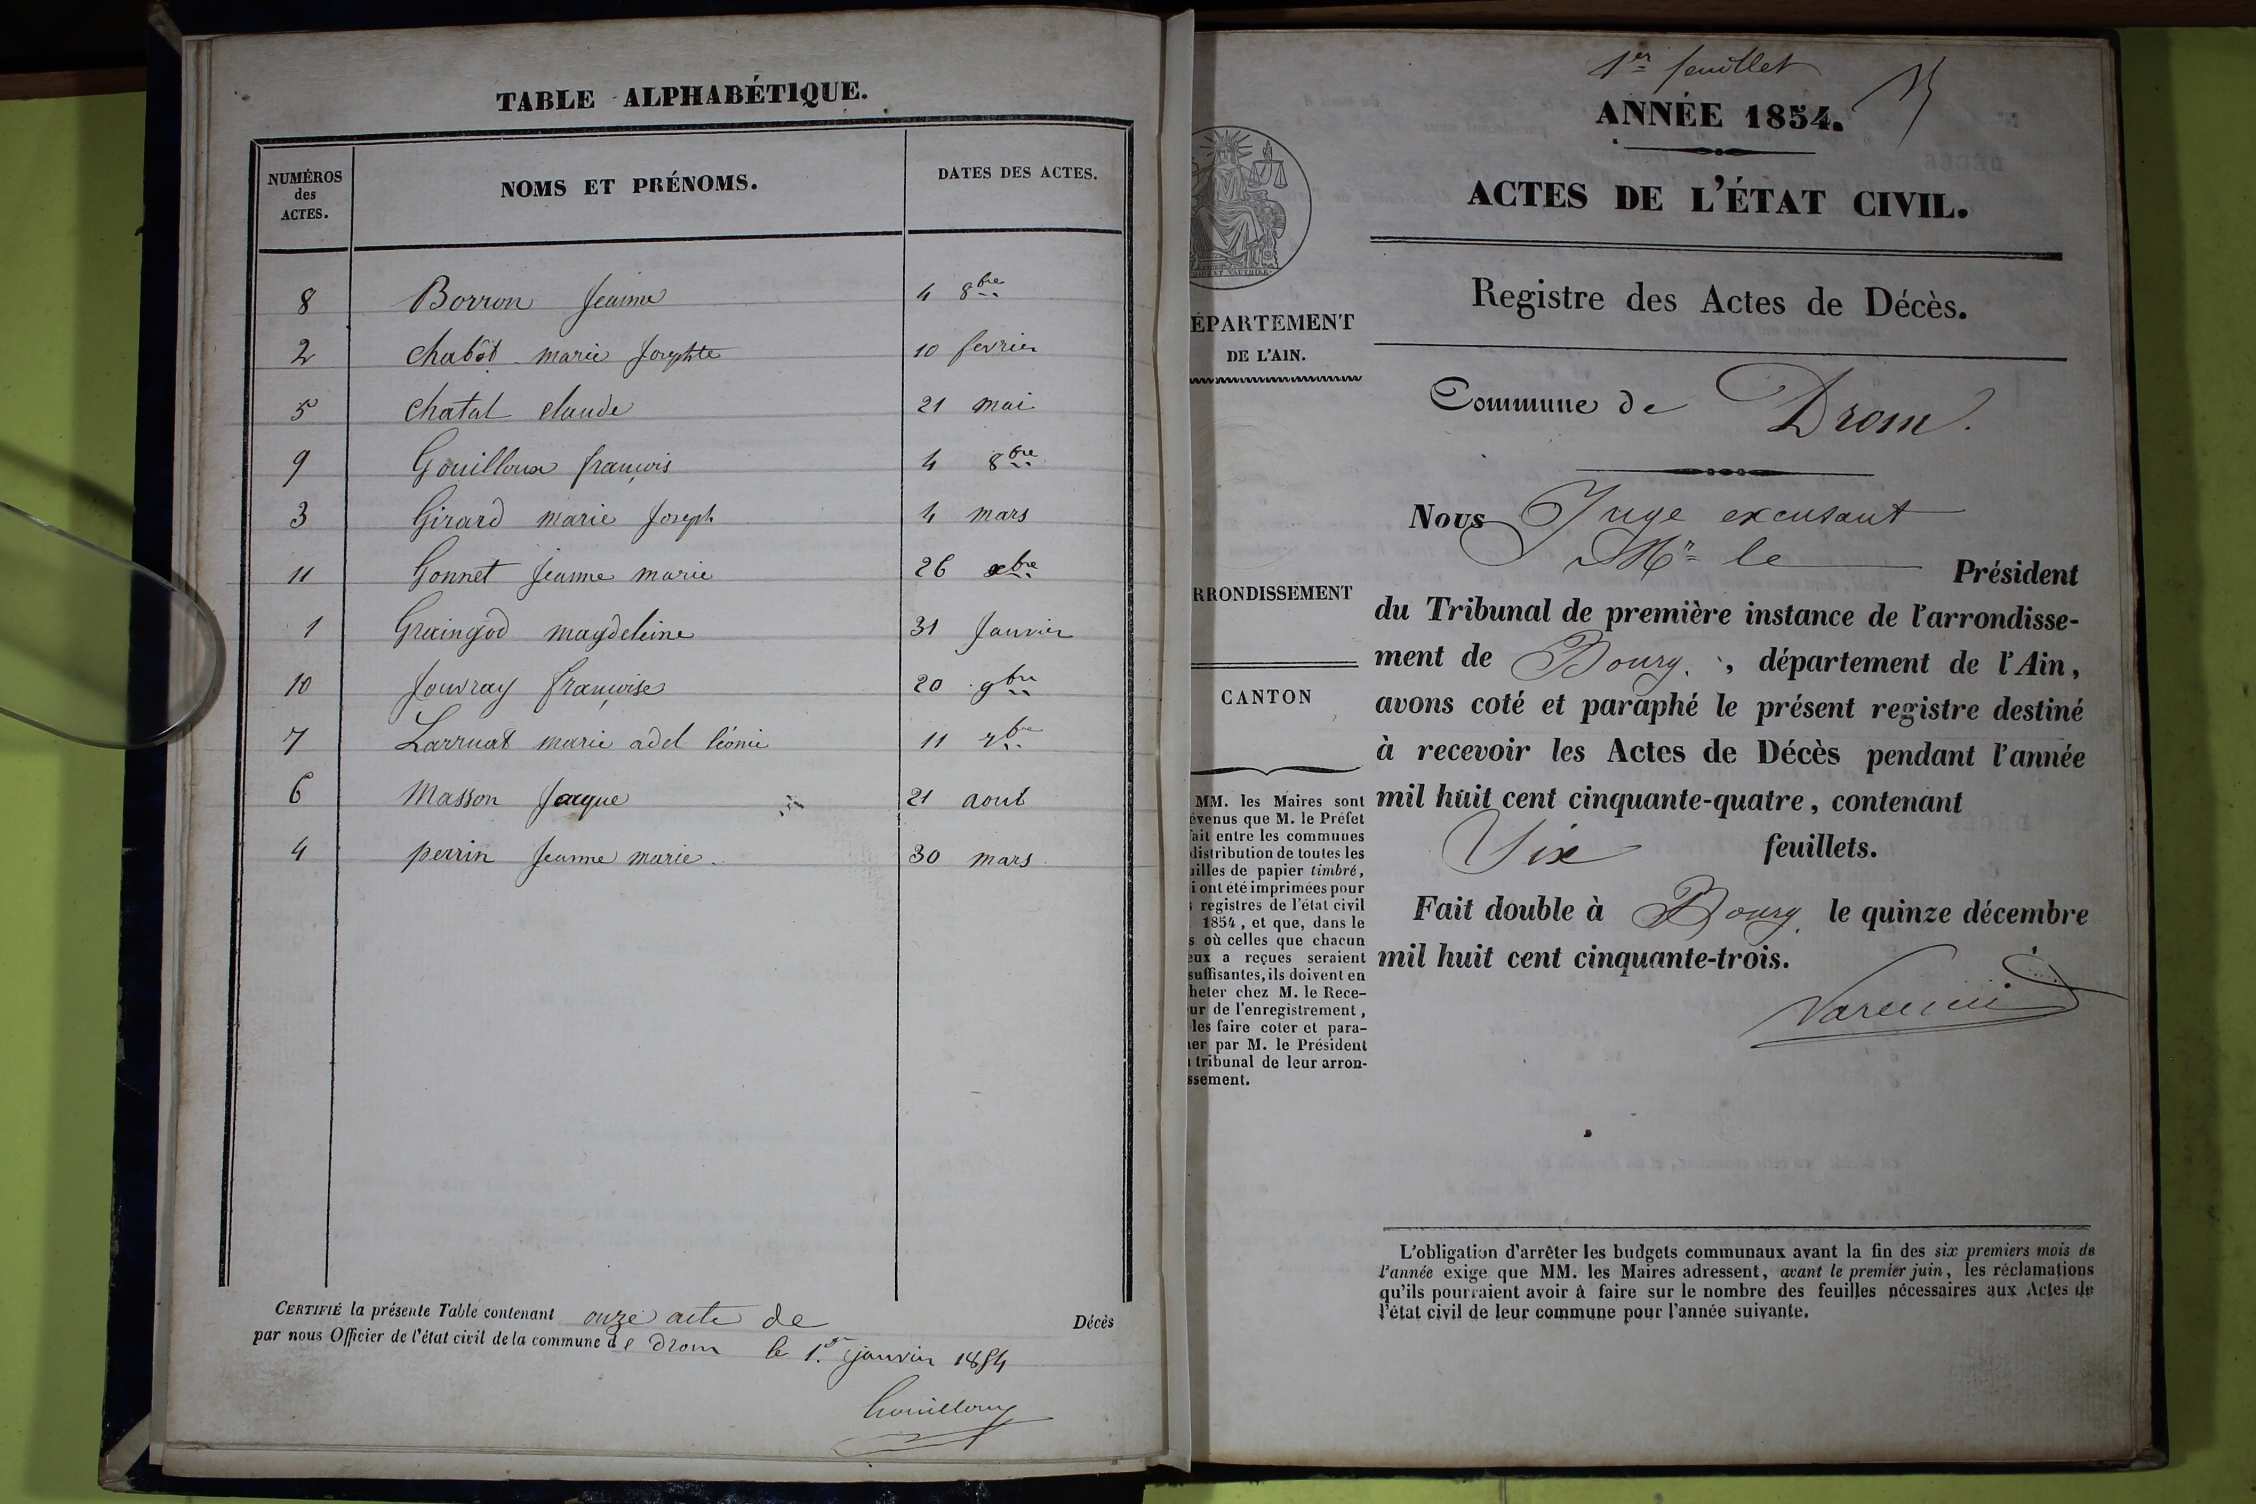 TABLE ALPHABÉTIQUE.
NUMÉROS des ACTES.
NOMS ET PRÉNOMS.
DATES DES ACTES.
8 Borron Jeanne 4 8bre
2 chabôt marie Josephte 10 fevrier
5 chatal claude 21 mai
9 Gouilloux françois 4 8bre
3 Girard marie Joseph 4 mars
11 Gonnet Jeanne marie 26 xbre
1 Graingod magdeleine 31 Janvier
10 Jouvray françoise 20 9bre
7 Larruat marie adel léonie 11 7bre
6 Masson Jacque 21 aout
4 perrin Jeanne marie. 30 mars
CERTIFIÉ la présente Table contenant onze acte de Décès
par nous Officier de l'état civil de la commune de drom le 1er janvier 1854
Gouilloux
1er feuillet
ANNÉE 1854.
ACTES DE L'ÉTAT CIVIL.
Registre des Actes de Décès.
ÉPARTEMENT
DE L'AIN.
RRONDISSEMENT
CANTON
MM. les Maires sont
évenus que M. le Préfet
fait entre les communes
distribution de toutes les
uilles de papier timbré,
i ont été imprimées pour
s registres de l'état civil
1854, et que, dans le
s où celles que chacun
eux a reçues seraient
suffisantes, ils doivent en
heter chez M. le Rece-
ur de l'enregistrement,
les faire coter et para-
her par M. le Président
u tribunal de leur arron-
ssement.
Commune de Drom.
Nous Juge excusant
Mr le Président
du Tribunal de première instance de l'arrondisse-
ment de Bourg, département de l'Ain,
avons coté et paraphé le présent registre destiné
à recevoir les Actes de Décès pendant l'année
mil huit cent cinquante-quatre, contenant
Six feuillets.
Fait double à Bourg, le quinze décembre
mil huit cent cinquante-trois.
L'obligation d'arrêter les budgets communaux avant la fin des six premiers mois de
l'année exige que MM. les Maires adressent, avant le premier juin, les réclamations
qu'ils pourraient avoir à faire sur le nombre des feuilles nécessaires aux Actes de
l'état civil de leur commune pour l'année suivante.